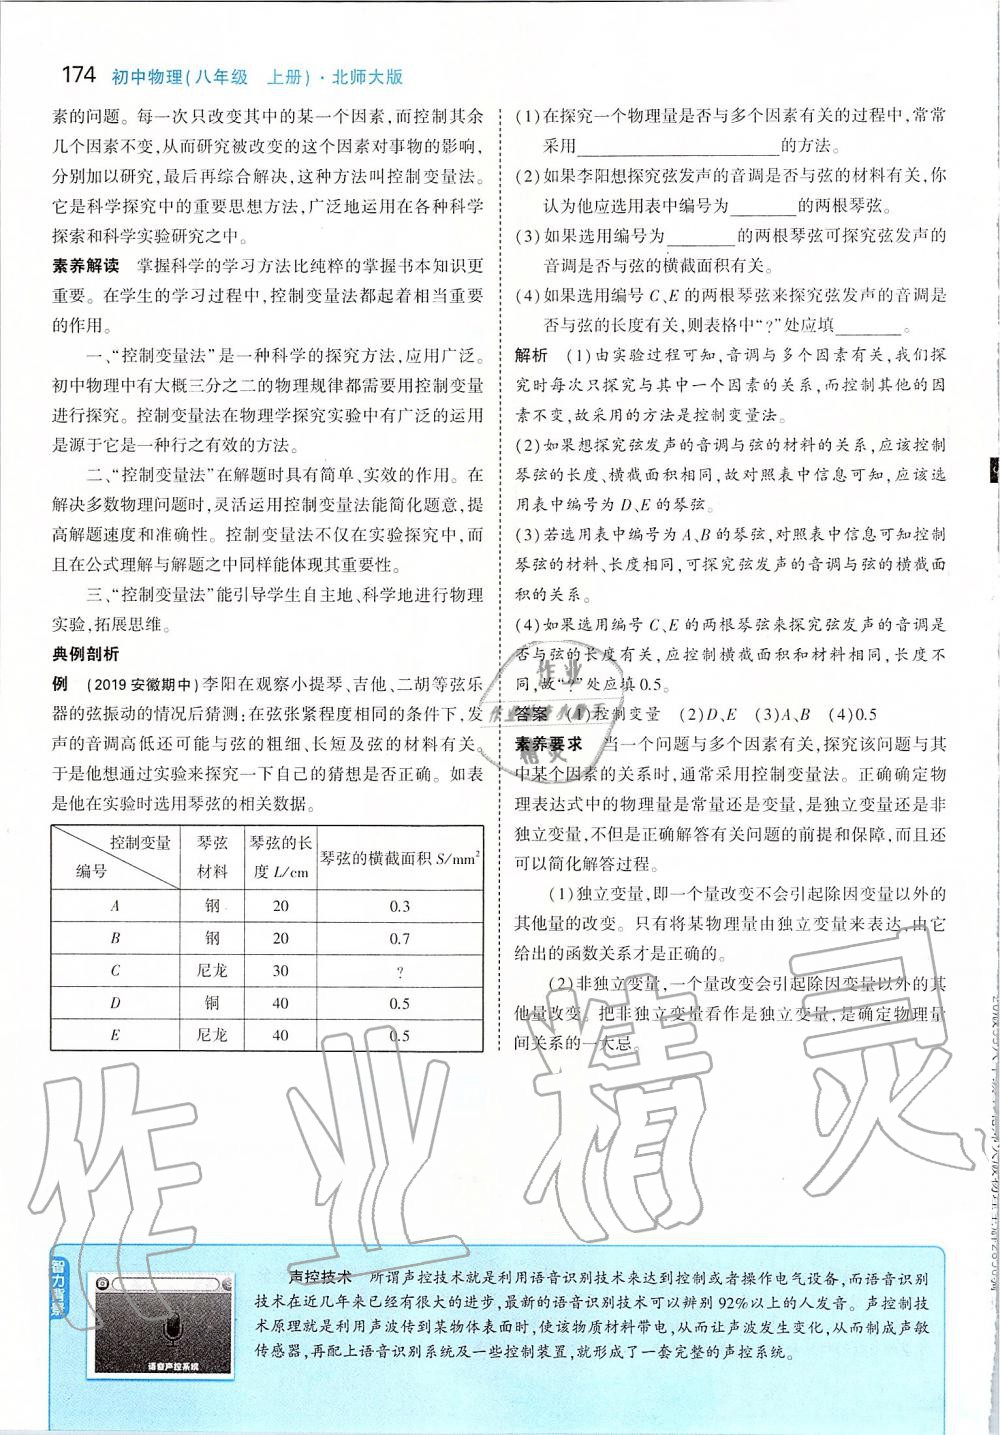 174 初中物理(八年级 上册)·北师大版
素的问题。每一次只改变其中的某一个因素,而控制其余
几个因素不变,从而研究被改变的这个因素对事物的影响,
分别加以研究,最后再综合解决,这种方法叫控制变量法。
它是科学探究中的重要思想方法,广泛地运用在各种科学
探索和科学实验研究之中。
素养解读 掌握科学的学习方法比纯粹的掌握书本知识更
重要。在学生的学习过程中,控制变量法都起着相当重要
的作用。
一、“控制变量法”是一种科学的探究方法,应用广泛。
初中物理中有大概三分之二的物理规律都需要用控制变量
进行探究。控制变量法在物理学探究实验中有广泛的运用
是源于它是一种行之有效的方法。
二、“控制变量法”在解题时具有简单、实效的作用。在
解决多数物理问题时,灵活运用控制变量法能简化题意,提
高解题速度和准确性。控制变量法不仅在实验探究中,而
且在公式理解与解题之中同样能体现其重要性。
三、“控制变量法”能引导学生自主地、科学地进行物理
实验,拓展思维。
典例剖析
例 (2019安徽期中)李阳在观察小提琴、吉他、二胡等弦乐
器的弦振动的情况后猜测:在弦张紧程度相同的条件下,发
声的音调高低还可能与弦的粗细、长短及弦的材料有关。
于是他想通过实验来探究一下自己的猜想是否正确。如表
是他在实验时选用琴弦的相关数据。
控制变量 琴弦 琴弦的长 琴弦的横截面积S/mm²
编号 材料 度L/cm
A 钢 20 0.3
B 钢 20 0.7
C 尼龙 30 ?
D 铜 40 0.5
E 尼龙 40 0.5
(1)在探究一个物理量是否与多个因素有关的过程中,常常
采用____________的方法。
(2)如果李阳想探究弦发声的音调是否与弦的材料有关,你
认为他应选用表中编号为______的两根琴弦。
(3)如果选用编号为______的两根琴弦可探究弦发声的
音调是否与弦的横截面积有关。
(4)如果选用编号C、E的两根琴弦来探究弦发声的音调是
否与弦的长度有关,则表格中“?”处应填______。
解析 (1)由实验过程可知,音调与多个因素有关,我们探
究时每次只探究与其中一个因素的关系,而控制其他的因
素不变,故采用的方法是控制变量法。
(2)如果想探究弦发声的音调与弦的材料的关系,应该控制
琴弦的长度、横截面积相同,故对照表中信息可知,应该选
用表中编号为D、E的琴弦。
(3)若选用表中编号为A、B的琴弦,对照表中信息可知控制
琴弦的材料、长度相同,可探究弦发声的音调与弦的横截面
积的关系。
(4)如果选用编号C、E的两根琴弦来探究弦发声的音调是
否与弦的长度有关,应控制横截面积和材料相同,长度不
同,故“?”处应填0.5。
答案 (1)控制变量 (2)D、E (3)A、B (4)0.5
素养要求 当一个问题与多个因素有关,探究该问题与其
中某个因素的关系时,通常采用控制变量法。正确确定物
理表达式中的物理量是常量还是变量,是独立变量还是非
独立变量,不但是正确解答有关问题的前提和保障,而且还
可以简化解答过程。
(1)独立变量,即一个量改变不会引起除因变量以外的
其他量的改变。只有将某物理量由独立变量来表达,由它
给出的函数关系才是正确的。
(2)非独立变量,一个量改变会引起除因变量以外的其
他量改变。把非独立变量看作是独立变量,是确定物理量
间关系的一大忌。
作业精灵
智力背景
语音声控系统
声控技术 所谓声控技术就是利用语音识别技术来达到控制或者操作电气设备,而语音识别
技术在近几年来已经有很大的进步,最新的语音识别技术可以辨别92%以上的人发音。声控制技
术原理就是利用声波传到某物体表面时,使该物质材料带电,从而让声波发生变化,从而制成声敏
传感器,再配上语音识别系统及一些控制装置,就形成了一套完整的声控系统。